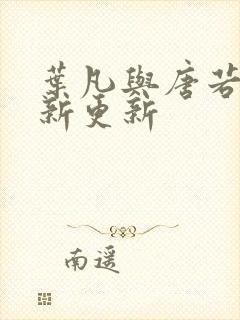 葉凡與唐若
新更新
南遥